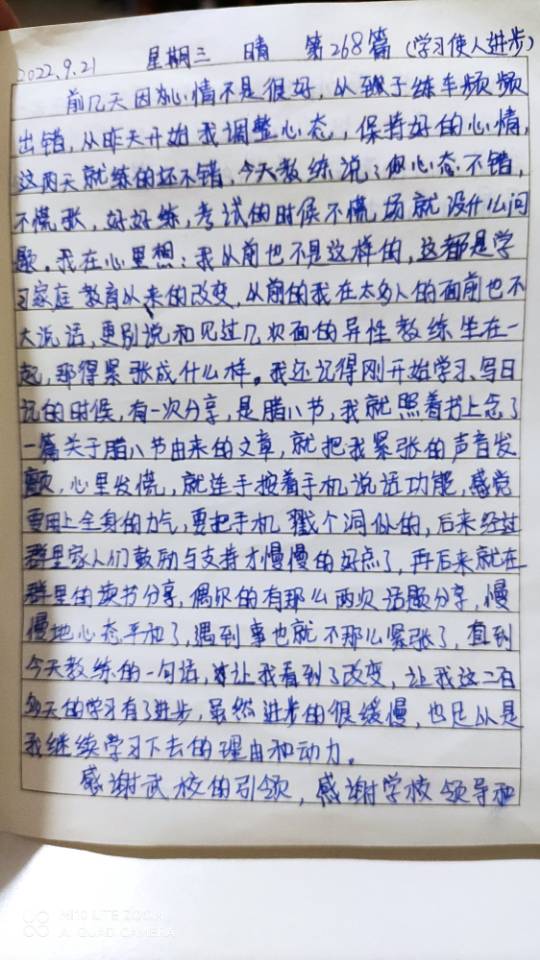 2022.9.21 星期三 晴 第268篇(学习使人进步)
前几天因为心情不是很好,从而导于练车频频
出错,从昨天开始我调整心态,保持好的心情,
这两天就练的还不错,今天教练说:你心态不错,
不慌张,好好练,考试的时候不慌场就没什么问
题。我在心里想:我从前也不是这样的,这都是学
习家庭教育以来的改变,从前的我在太多人的面前也不
大说话,更别说和见过几次面的异性教练坐在一
起,那得紧张成什么样。我还记得刚开始学习、写日
记的时候,有一次分享,是腊八节,我就照着书上念了
一篇关于腊八节由来的文章,就把我紧张的声音发
颤,心里发慌,就连手按着手机说话功能,感觉
要用上全身的力气,要把手机戳个洞似的,后来经过
群里家人们鼓励与支持才慢慢的好点了,再后来就在
群里的读书分享,偶尔的有那么两次话题分享,慢
慢地心态平和了,遇到事也就不那么紧张了,直到
今天教练的一句话,才让我看到了改变,让我这二百
多天的学习有了进步,虽然进步的很缓慢,也足以是
我继续学习下去的理由和动力。
感谢武校的引领,感谢学校领导和
MI 10 LITE ZOOM
AI QUAD CAMERA